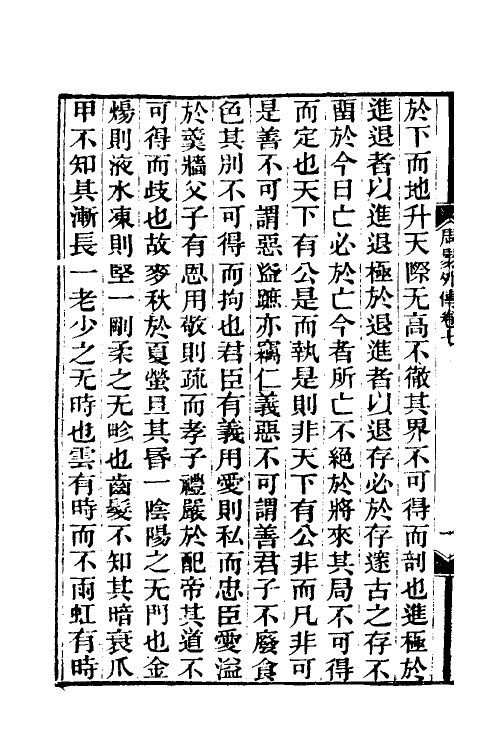 於下而地升天際无高不徹其界不可得而剖也進極於
進退者以進退極於退進者以退存必於存遂古之存不
留於今日亡必於亡今者所亡不絕於將來其局不可得
而定也天下有公是而執是則非天下有公非而凡非可
是善不可謂惡盜蹠亦竊仁義惡不可謂善君子不廢食
色其別不可得而拘也君臣有義用愛則私而忠臣愛溢
於羹牆父子有恩用敬則疏而孝子禮嚴於配帝其道不
可得而歧也故麥秋於夏螢旦其昏一陰陽之无門也金
煬則液水凍則堅一剛柔之无畛也齒髮不知其暗衰爪
甲不知其漸長一老少之无時也雲有時而不雨虹有時
周易外傳卷七
一